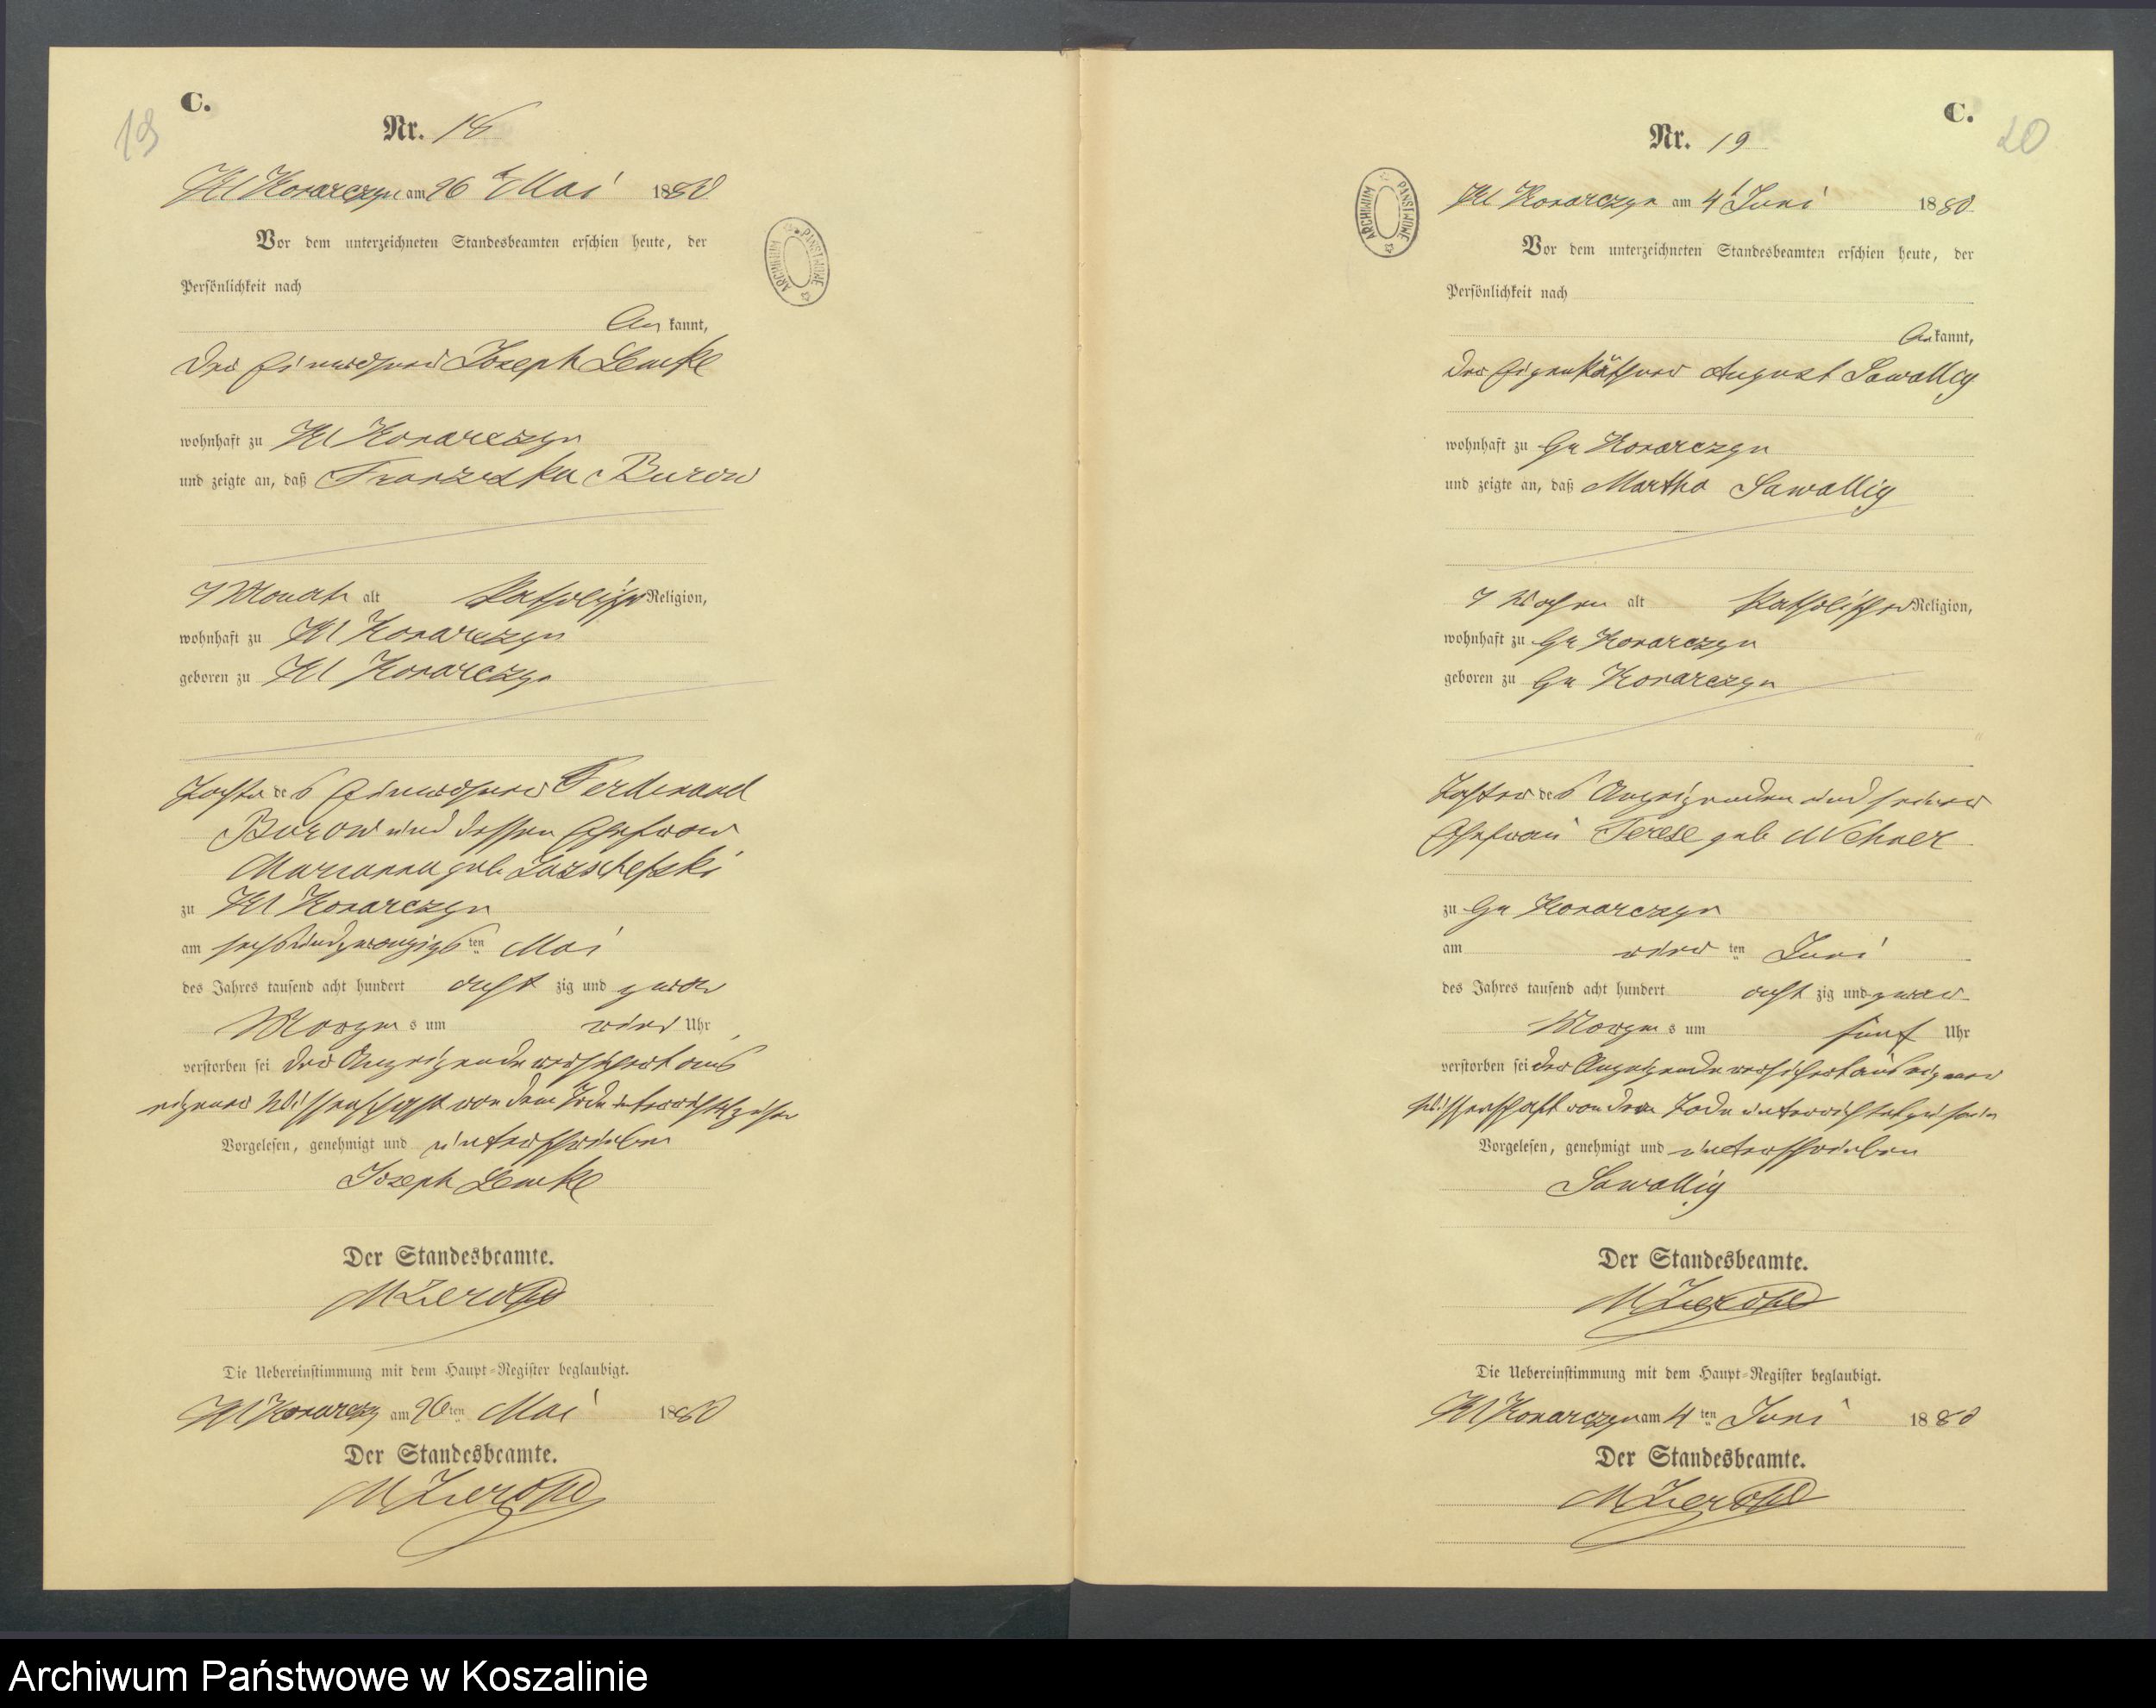 19
C.
Nr. 18
Kl Konarczyn am 26 t Mai 1880
Vor dem unterzeichneten Standesbeamten erschien heute, der
Persönlichkeit nach
kannt,
der Einwohner Joseph Lemke
wohnhaft zu Kl Konarczyn
und zeigte an, daß Franziska Burow
Monate alt katholischer Religion,
wohnhaft zu Kl Konarczyn
geboren zu Kl Konarczyn
Tochter des Einwohners Ferdinand
Burow und dessen Ehefrau
Marianna geb.
zu Kl Konarczyn
am sechsundzwanzigsten Mai
des Jahres tausend acht hundert acht zig und zwar
Morgens um vier Uhr
verstorben sei der Anzeigende versichert aus
eigener Wissenschaft von dem Tode unterrichtet zu sein
Vorgelesen, genehmigt und unterschrieben
Joseph Lemke
Der Standesbeamte.
Die Uebereinstimmung mit dem Haupt-Register beglaubigt.
Kl Konarczyn am 26ten Mai 1880
Der Standesbeamte.
ARCHIWUM PAŃSTWOWE
C.
20
Nr. 19
Kl Konarczyn am 4 t Juni 1880
Vor dem unterzeichneten Standesbeamten erschien heute, der
Persönlichkeit nach
kannt,
der Eigenkäthner August Sawallig
wohnhaft zu Gr Konarczyn
und zeigte an, daß Martha Sawallig
Wochen alt katholischer Religion,
wohnhaft zu Gr Konarczyn
geboren zu Gr Konarczyn
Tochter des Anzeigenden und seiner
Ehefrau Terese geb
zu Gr Konarczyn
am vierten Juni
des Jahres tausend acht hundert acht zig und zwar
Morgens um fünf Uhr
verstorben sei der Anzeigende versichert aus eigener
Wissenschaft von dem Tode unterrichtet zu sein
Vorgelesen, genehmigt und unterschrieben
Sawallig
Der Standesbeamte.
Die Uebereinstimmung mit dem Haupt-Register beglaubigt.
Kl Konarczyn am 4ten Juni 1880
Der Standesbeamte.
ARCHIWUM PAŃSTWOWE
Archiwum Państwowe w Koszalinie